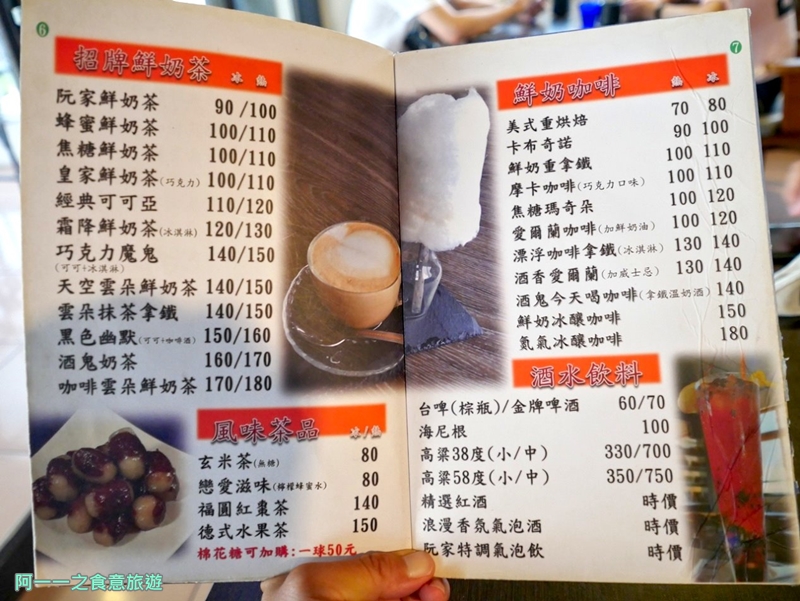 6
招牌鮮奶茶 冰 熱
阮家鮮奶茶 90/100
蜂蜜鮮奶茶 100/110
焦糖鮮奶茶 100/110
皇家鮮奶茶(巧克力) 100/110
經典可可亞 110/120
霜降鮮奶茶(冰淇淋) 120/130
巧克力魔鬼 140/150
(可可+冰淇淋)
天空雲朵鮮奶茶 140/150
雲朵抹茶拿鐵 140/150
黑色幽默(可可+咖啡酒) 150/160
酒鬼奶茶 160/170
咖啡雲朵鮮奶茶 170/180
風味茶品 冰/熱
玄米茶(無糖) 80
戀愛滋味(檸檬蜂蜜水) 80
福圓紅棗茶 140
德式水果茶 150
棉花糖可加購:一球50元
7
鮮奶咖啡 熱 冰
美式重烘焙 70 80
卡布奇諾 90 100
鮮奶重拿鐵 100 110
摩卡咖啡(巧克力口味) 100 110
焦糖瑪奇朵 100 120
愛爾蘭咖啡(加鮮奶油) 100 120
漂浮咖啡拿鐵(冰淇淋) 130 140
酒香愛爾蘭(加威士忌) 130 140
酒鬼今天喝咖啡(拿鐵溫奶酒) 140
鮮奶冰釀咖啡 150
氮氣冰釀咖啡 180
酒水飲料
台啤(棕瓶)/金牌啤酒 60/70
海尼根 100
高粱38度(小/中) 330/700
高粱58度(小/中) 350/750
精選紅酒 時價
浪漫香氛氣泡酒 時價
阮家特調氣泡飲 時價
阿一一之食意旅遊